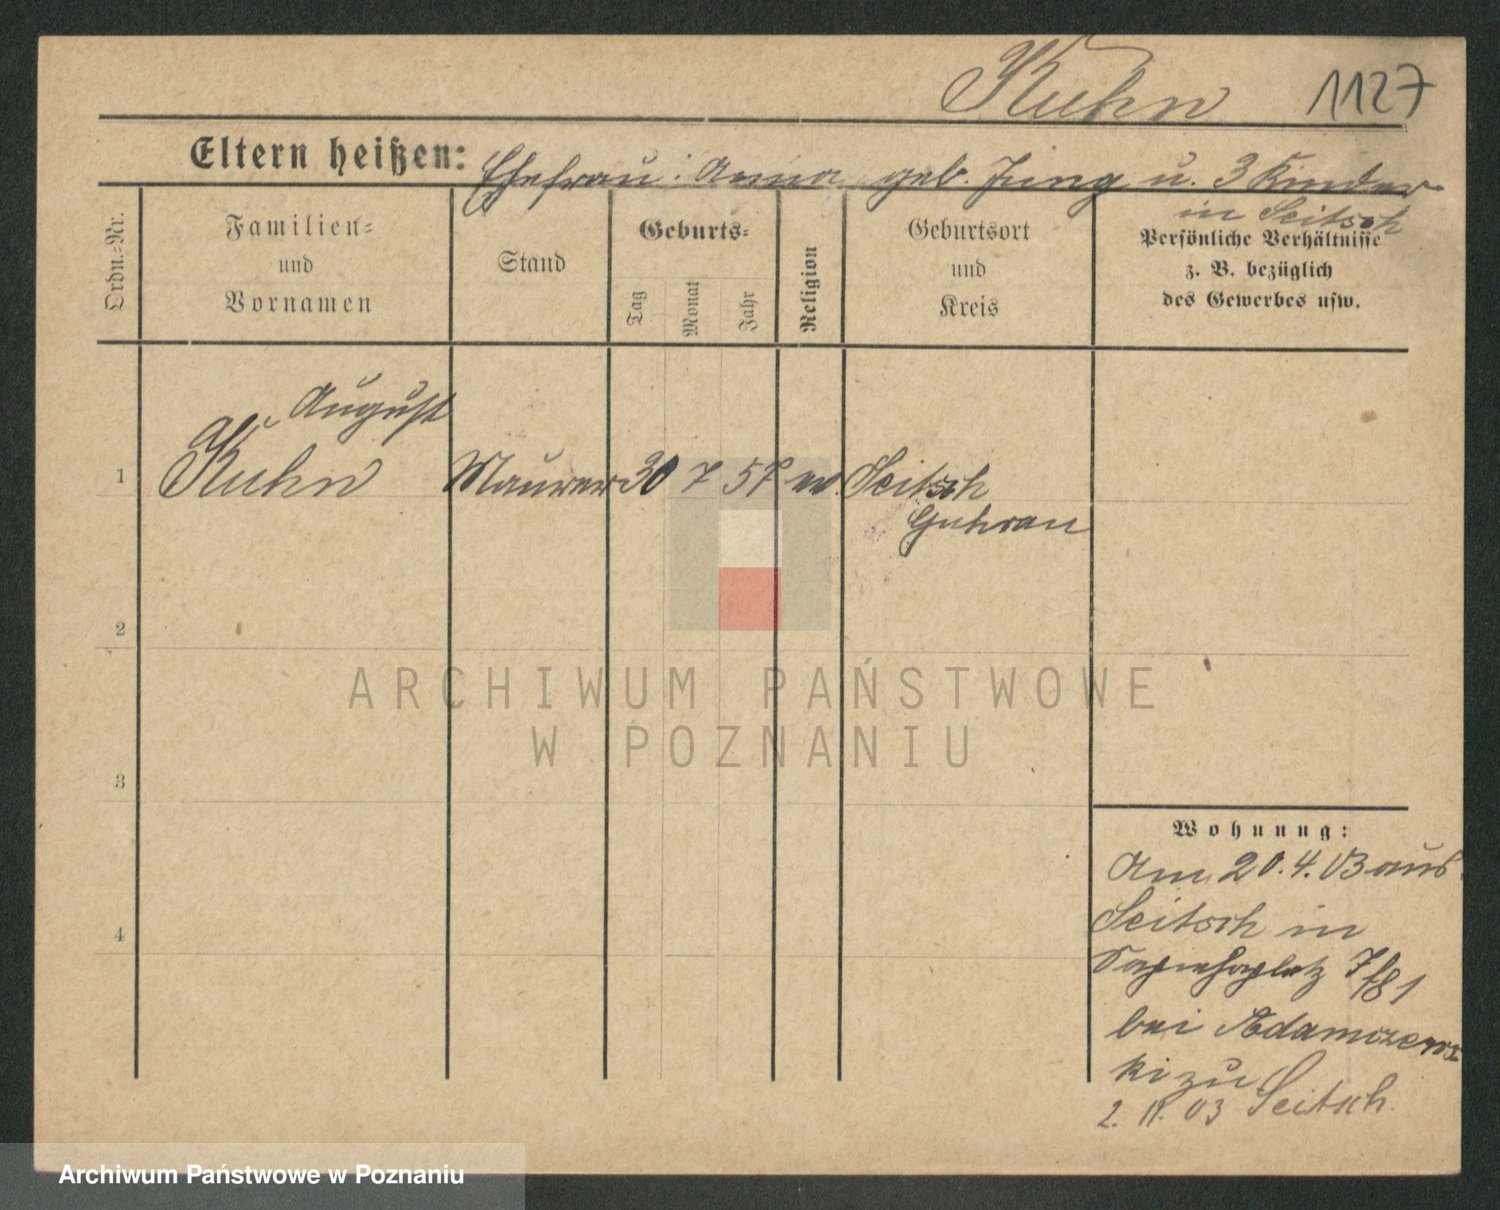 Kuhn 1127
Eltern heißen: Ehefrau: Anna geb. Jung u. 3 Kinder
in Seitsch
Ordn.-Nr.
Familien-
und
Vornamen
Stand
Geburts-
Tag
Monat
Jahr
Religion
Geburtsort
und
Kreis
Persönliche Verhältnisse
z. B. bezüglich
des Gewerbes usw.
August
1 Kuhn Maurer 30 7 57 ev. Seitsch
Guhrau
2
3
4
ARCHIWUM PAŃSTWOWE
W POZNANIU
Wohnung:
Am 20.4.03 aus
Seitsch in
Sapiehaplatz 7/81
bei Adamczews
ki zu
2. 11. 03 Seitsch.
Archiwum Państwowe w Poznaniu